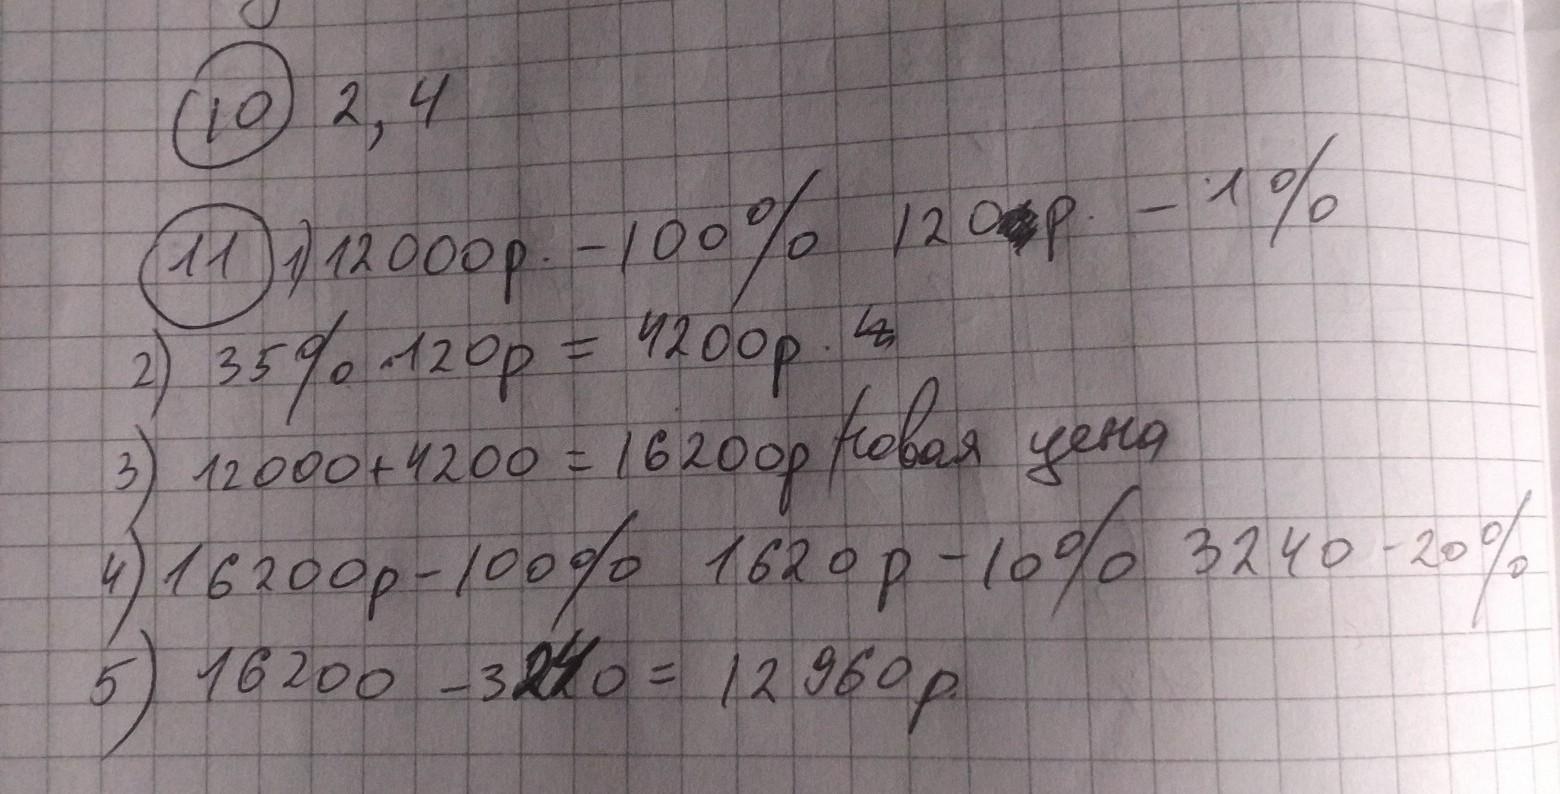 10 2, 4
11 1) 12000р. - 100% 120р. - 1%
2) 35% · 120р = 4200р.
3) 12000+4200 = 16200р новая цена
4) 16200р - 100% 1620р - 10% 3240 - 20%
5) 16200 - 3240 = 12960р.